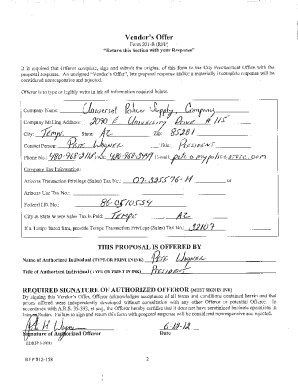 Vendor's Offer
Form 201-B (RFP)
"Return this Section with your Response"
It is required that Offeror complete, sign and submit the original of this form to the City Procurement Office with the
proposal response. An unsigned "Vendor's Offer", late proposal response and/or a materially incomplete response will be
considered nonresponsive and rejected.
Offeror is to type or legibly write in ink all information required below.
Company Name: Universal Police Supply Company
Company Mailing Address: 2090 E University Drive #115
City: Tempe State: AZ Zip: 85281
Contact Person: Pete Wagner Title: President
Phone No.: FAX: E-mail:
Company Tax Information:
Arizona Transaction Privilege (Sales) Tax No.: or
Arizona Use Tax No.:
Federal I.D. No.: 86-0510534
City & State Where Sales Tax is Paid: Tempe AZ
If a Tempe based firm, provide Tempe Transaction Privilege (Sales) Tax No.: 22107
THIS PROPOSAL IS OFFERED BY
Name of Authorized Individual (TYPE OR PRINT IN INK) Pete Wagner
Title of Authorized Individual (TYPE OR PRINT IN INK) President
REQUIRED SIGNATURE OF AUTHORIZED OFFEROR (MUST SIGN IN INK)
By signing this Vendor's Offer, Offeror acknowledges acceptance of all terms and conditions contained herein and that
prices offered were independently developed without consultation with any other Offeror or potential Offeror. In
accordance with A.R.S. 35-393, et seq., the Offeror hereby certifies that it does not have scrutinized business operations in
Failure to sign and return this form with proposal response will be considered nonresponsive and rejected.
Signature of Authorized Offeror Date
2